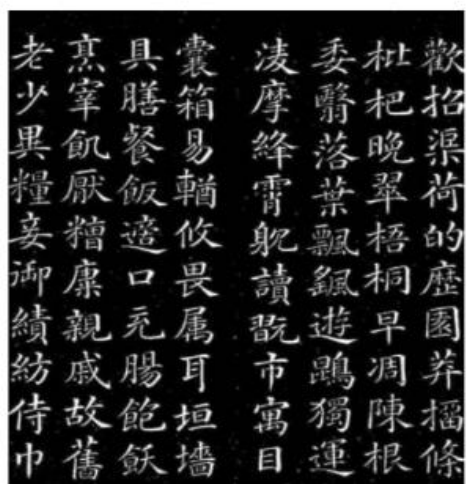 歡招渠荷的歷園莽㩅條
枇杷晚翠梧桐早凋陳根
委翳落葉飄颻遊鵾獨運
凌摩絳霄躭讀翫市寓目
囊箱易輶攸畏属耳垣墻
具膳餐飯適口充腸飽飫
烹宰飢厭糟糠親戚故舊
老少異糧妾御績紡侍巾